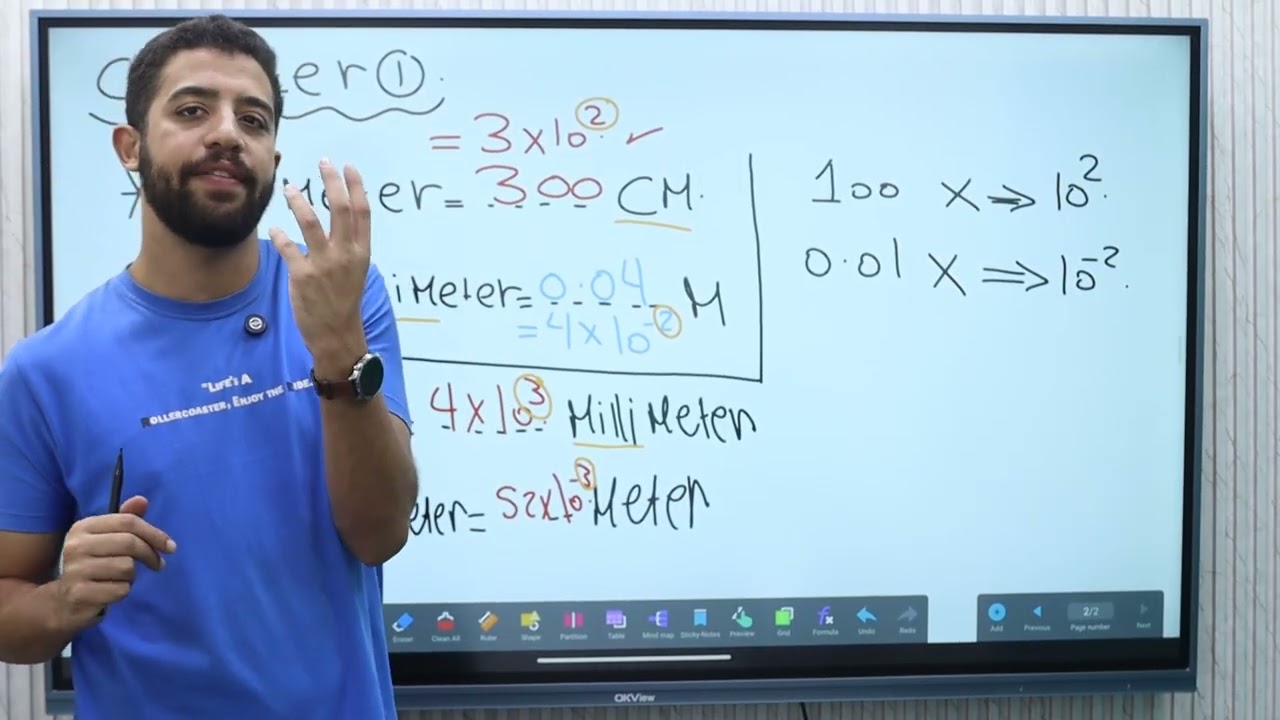 er①.
= 3x10² ✓
Meter = 300 CM.
iMeter = 0.04 M
= 4x10⁻²
4x10³ MilliMeter
eter = 52x10⁻³ Meter
100 X ⇒ 10².
0.01 X ⇒ 10⁻².
"LIFE'S A
ROLLERCOASTER, ENJOY THE RIDE.
Eraser Clean All Ruler Shape Partition Table Mind map Sticky-Notes Preview Grid Formula Undo Redo
Add Previous 2/2 Page number Next
OKView